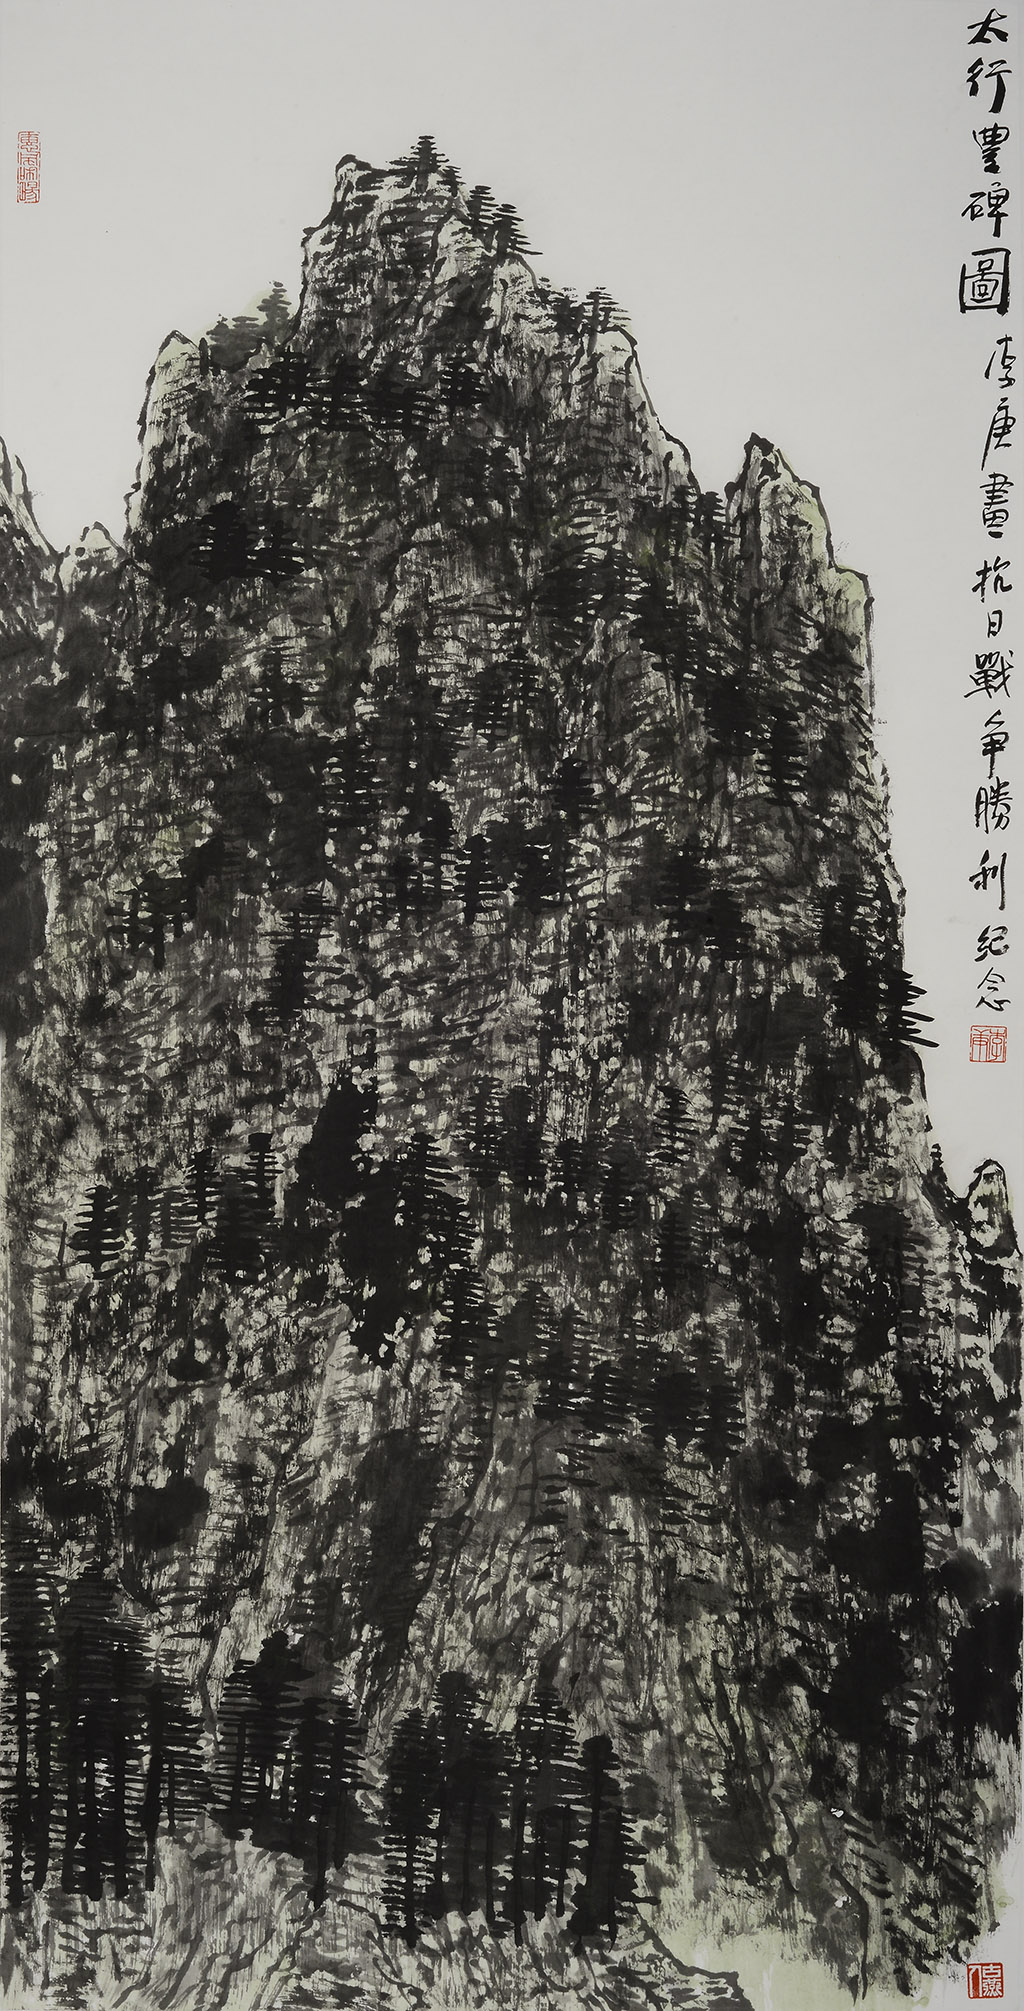 太行豐碑圖 李庚畫 抗日戰争勝利紀念
李庚